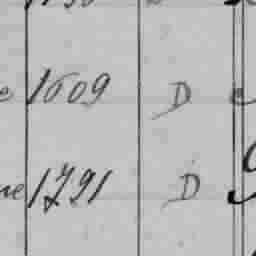 e 1609 D
ne 1791 D